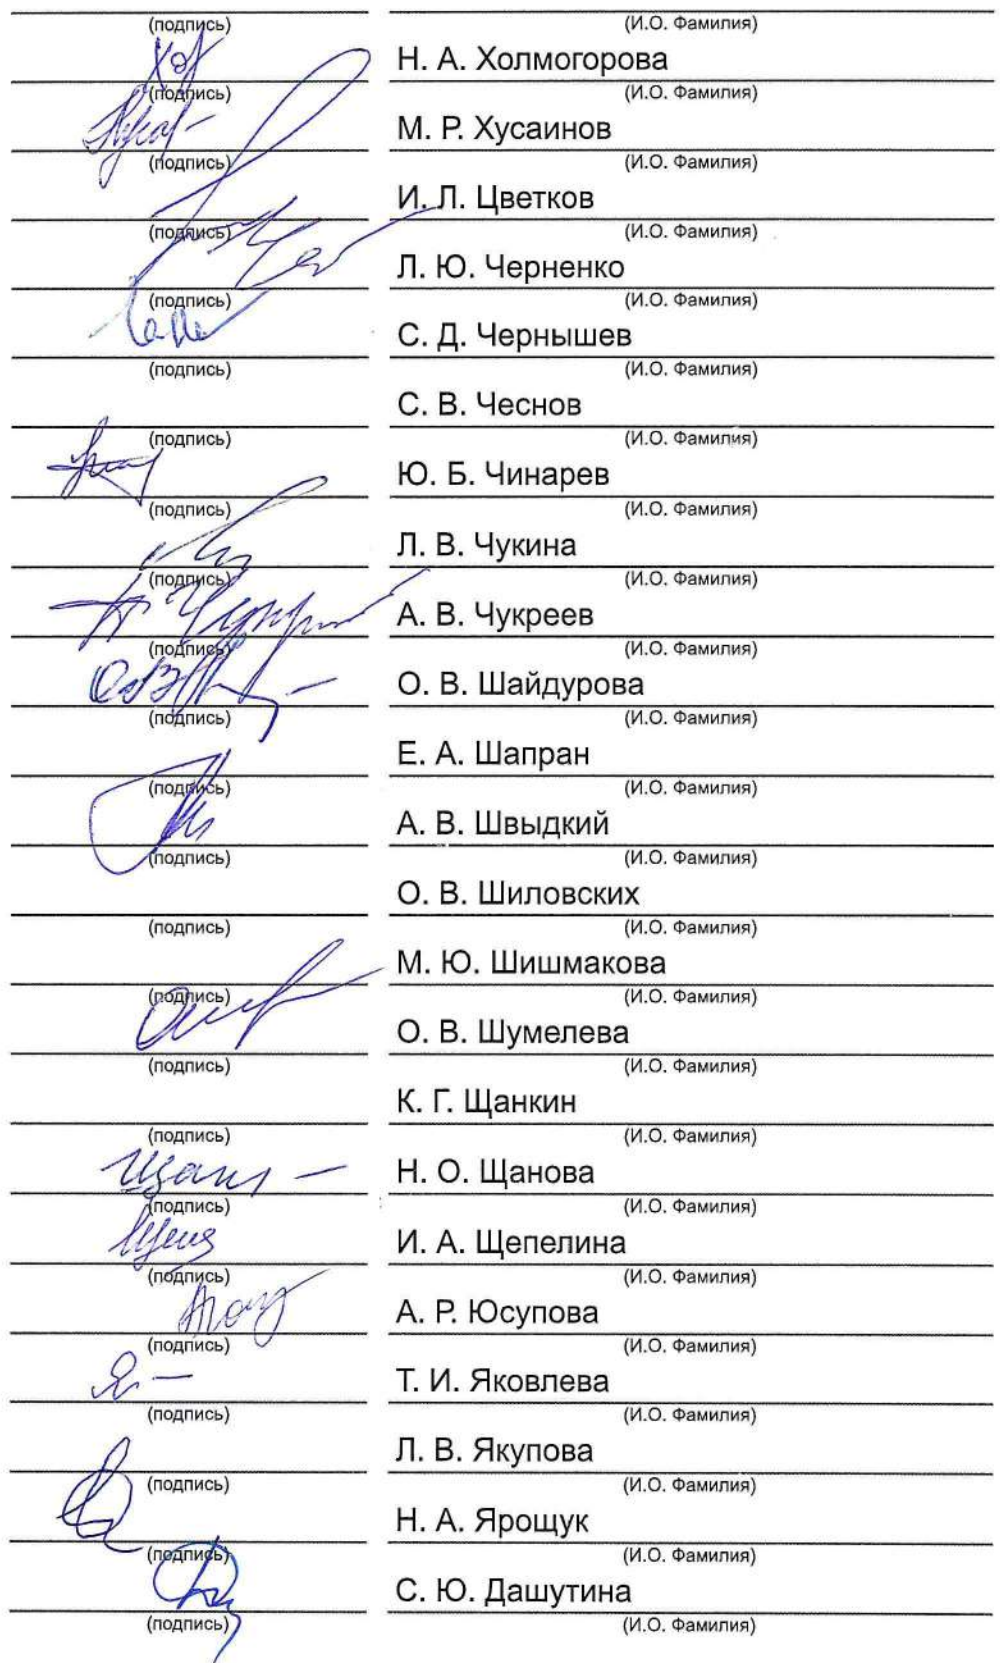 (подпись) (И.О. Фамилия)
Н. А. Холмогорова
(подпись) (И.О. Фамилия)
М. Р. Хусаинов
(подпись) (И.О. Фамилия)
И. Л. Цветков
(подпись) (И.О. Фамилия)
Л. Ю. Черненко
(подпись) (И.О. Фамилия)
С. Д. Чернышев
(подпись) (И.О. Фамилия)
С. В. Чеснов
(подпись) (И.О. Фамилия)
Ю. Б. Чинарев
(подпись) (И.О. Фамилия)
Л. В. Чукина
(подпись) (И.О. Фамилия)
А. В. Чукреев
(подпись) (И.О. Фамилия)
О. В. Шайдурова
(подпись) (И.О. Фамилия)
Е. А. Шапран
(подпись) (И.О. Фамилия)
А. В. Швыдкий
(подпись) (И.О. Фамилия)
О. В. Шиловских
(подпись) (И.О. Фамилия)
М. Ю. Шишмакова
(подпись) (И.О. Фамилия)
О. В. Шумелева
(подпись) (И.О. Фамилия)
К. Г. Щанкин
(подпись) (И.О. Фамилия)
Н. О. Щанова
(подпись) (И.О. Фамилия)
И. А. Щепелина
(подпись) (И.О. Фамилия)
А. Р. Юсупова
(подпись) (И.О. Фамилия)
Т. И. Яковлева
(подпись) (И.О. Фамилия)
Л. В. Якупова
(подпись) (И.О. Фамилия)
Н. А. Ярощук
(подпись) (И.О. Фамилия)
С. Ю. Дашутина
(подпись) (И.О. Фамилия)